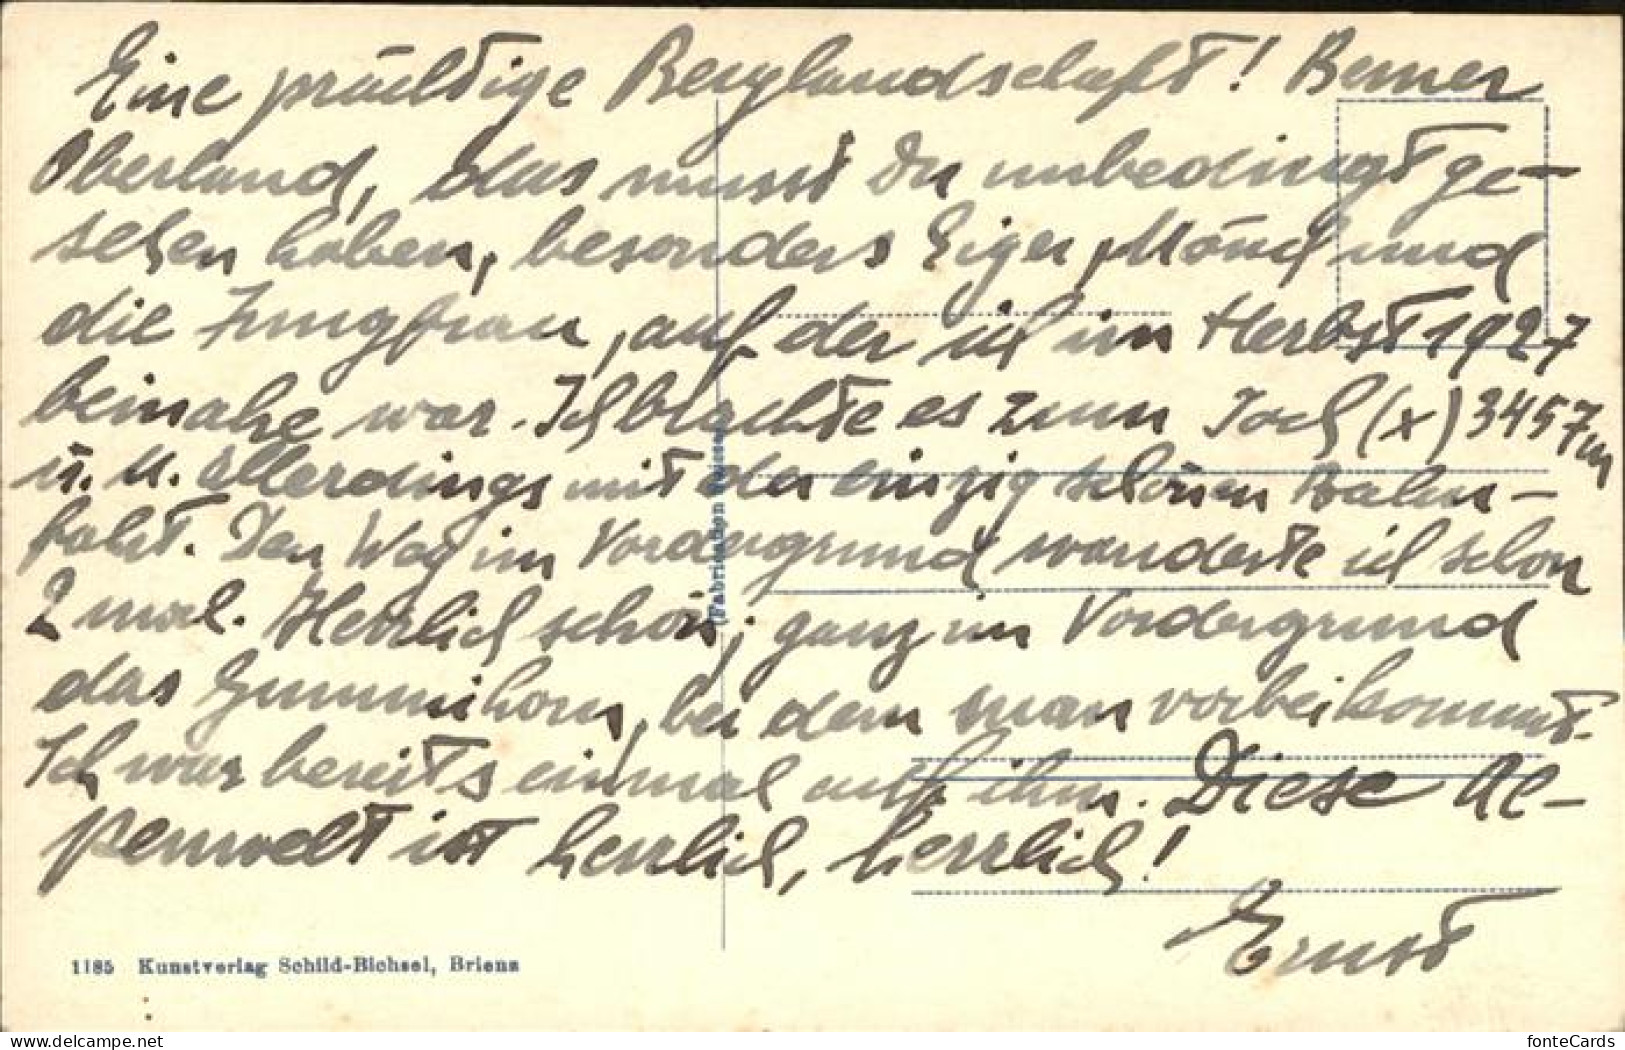 Eine prächtige Berglandschaft! Berner
Oberland, das musst Du unbedingt ge-
sehen haben, besonders Eiger, Mönch und
die Jungfrau, auf der ich im Herbst 1927
beinahe war. Ich brachte es zum Joch (x) 3457 m
ü. M. allerdings mit der einzig schönen Bahn-
fahrt. Den Weg im Vordergrund wanderte ich schon
2 mal. Herrlich schön; ganz im Vordergrund
das Gummihorn, bei dem man vorbeikommt.
Ich war bereits einmal auf ihm. Diese Al-
penwelt ist herrlich, herrlich!
Ernst
1185 Kunstverlag Schild-Bichsel, Brienz
www.delcampe.net
fonteCards